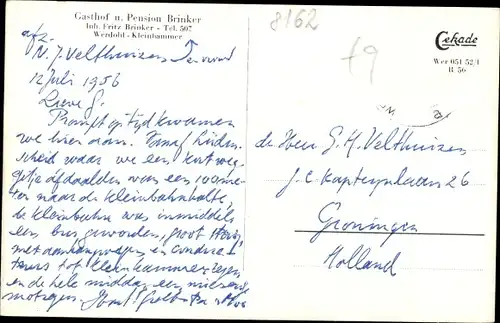 Gasthof u. Pension Brinker
Inh. Fritz Brinker - Tel. 507
Werdohl-Kleinhammer
8162
Cekade
Wer 051 52/1
R 56
afz.
N. J. Velthuizen
12 Juli 1956
Lieve G.
Prompt op tijd kwamen
we hier aan. Vanaf Lüden-
scheid waar we een kort weg-
getje afdaalden van een 100 me-
ter naar de Kleinbahnhalte,
de kleinbahn was inmiddels
een bus geworden, groot
met aanhangwagen en conduc-
teurs tot Kleinhammer. Regen
en de hele middag een miese
motregen.
de Heer G. H. Velthuizen
J. C. Kapteynlaan 26
Groningen
Holland